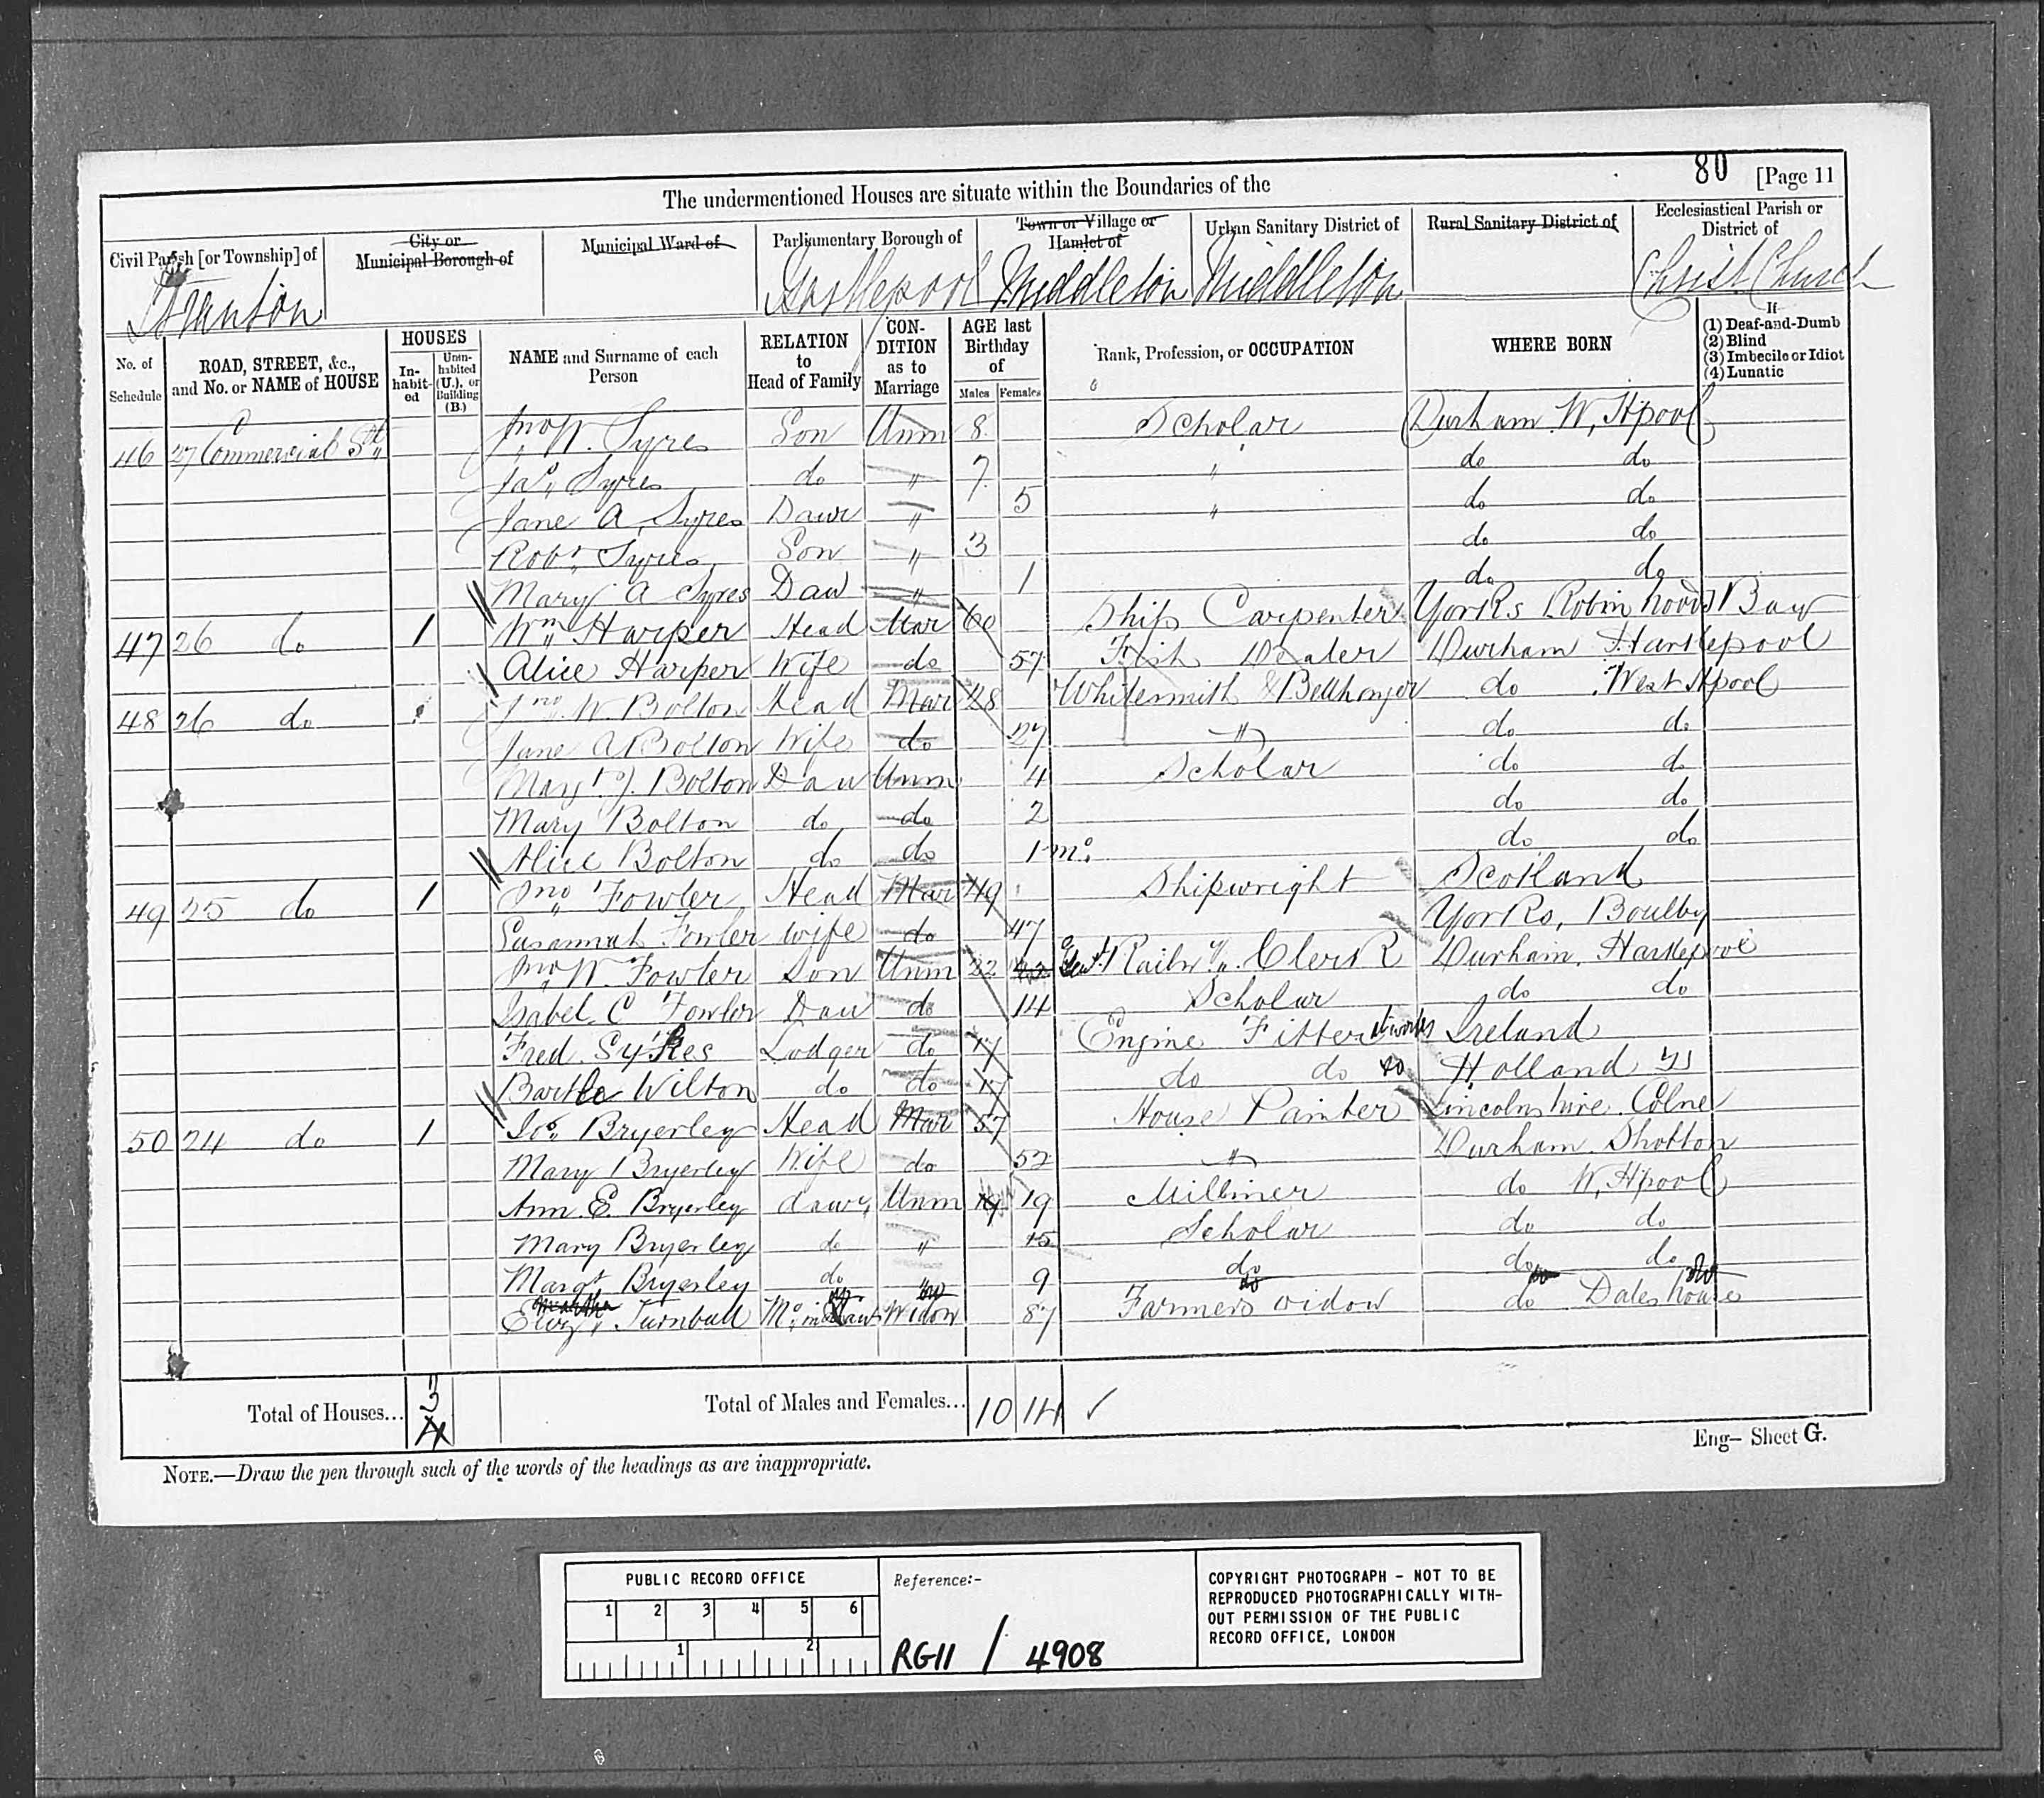 80 [Page 11
The undermentioned Houses are situate within the Boundaries of the
Civil Parish [or Township] of
City or Municipal Borough of
Municipal Ward of
Parliamentary Borough of
Town or Village or Hamlet of
Urban Sanitary District of
Rural Sanitary District of
Ecclesiastical Parish or District of
Stranton Hartlepool Middleton Middleton Christ Church
No. of Schedule
ROAD, STREET, &c., and No. or NAME of HOUSE
HOUSES
In-habit-ed
Unin-habited (U.), or Building (B.)
NAME and Surname of each Person
RELATION to Head of Family
CON-DITION as to Marriage
AGE last Birthday of
Males Females
Rank, Profession, or OCCUPATION
WHERE BORN
If
(1) Deaf-and-Dumb
(2) Blind
(3) Imbecile or Idiot
(4) Lunatic
46 27 Commercial St Jno W. Syres Son Unm 8 Scholar Durham W, Hpool
Jas Syres do " 7 " do do
Jane A, Syres Dawr " 5 " do do
Robt Syres Son " 3 do do
Mary A Syres Daw " 1 do do
47 26 do 1 Wm Harper Head Mar 60 Ship Carpenter Yorks Robin Hoods Bay
Alice Harper Wife do 57 Fish Dealer Durham Hartlepool
48 26 do Jno W. Bolton Head Mar 28 Whitesmith & Bellhanger do West Hpool
Jane A Bolton Wife do 27 " do do
Margt J. Bolton Daw Unm 4 Scholar do do
Mary Bolton do do 2 do do
Alice Bolton do do 1 mo. do do
49 25 do 1 Jno Fowler Head Mar 49 Shipwright Scotland
Susannah Fowler Wife do 47 Yorks, Boulby
Jno W. Fowler Son Unm 22 Railwy Clerk Durham, Hartlepool
Isabel C Fowler Daw do 14 Scholar do do
Fred Sykes Lodger do 17 Engine Fitter Ireland
Bartle Wilton do do 17 do do do Holland
50 24 do 1 Jos Bryerley Head Mar 57 House Painter Lincolnshire Colne
Mary Bryerley Wife do 52 " Durham Shotton
Ann E. Bryerley dawr Unm 19 19 Milliner do W, Hpool
Mary Bryerley do " 15 Scholar do do
Margt Bryerley do 9 do do do
Turnbull Widow 87 Farmers widow do Daleshouse
Total of Houses... 3 4
Total of Males and Females... 10 14 ✓
Eng— Sheet G.
NOTE.—Draw the pen through such of the words of the headings as are inappropriate.
PUBLIC RECORD OFFICE
1 2 3 4 5 6
1 2
Reference:-
RG11 / 4908
COPYRIGHT PHOTOGRAPH - NOT TO BE
REPRODUCED PHOTOGRAPHICALLY WITH-
OUT PERMISSION OF THE PUBLIC
RECORD OFFICE, LONDON